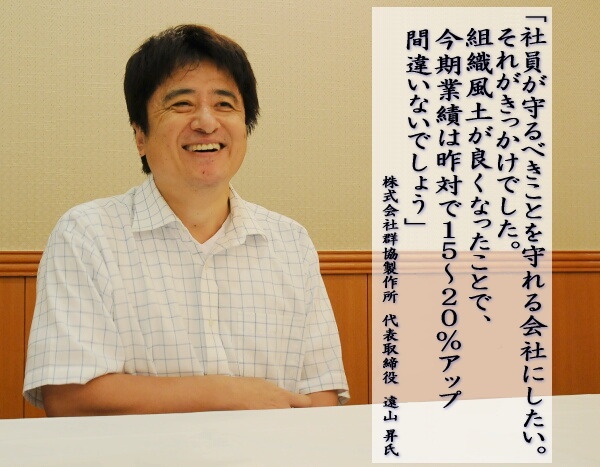 「社員が守るべきことを守れる会社にしたい。
それがきっかけでした。
組織風土が良くなったことで、
今期業績は昨対で15～20％アップ
間違いないでしょう」
株式会社群協製作所 代表取締役 遠山 昇氏